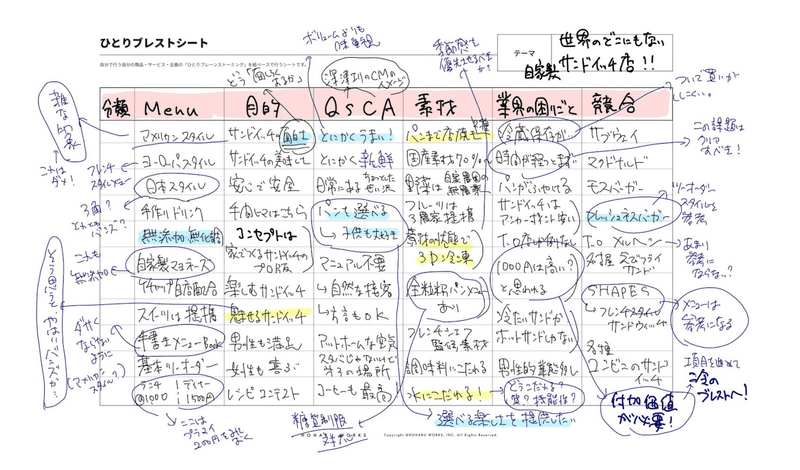 ひとりブレストシート
自分で行う自分の商品・サービス・企画の「ひとりブレーンストーミング」を紙ベースで行うシートです。
テーマ
世界のどこにもない
自家製 サンドイッチ店!!
ボリュームよりも
味重視
深澤

のCMの
イメージ
どう「面白く」
するか?
季節感も
優先させるべき
か?
ついで買いが
しにくい。
雑な印象
これは
ダメ!
フレンチ
スタイルメニュー
3角?
これも
無添加
ダサく
ならない
ように
(アメリカン
スタイル?)
分類
Menu
アメリカンスタイル
ヨーロパスタイル
日本スタイル
手作りドリンク
無添加 無化調
自家製マヨネーズ
ケチャップ自店配合
スイーツは提携
手書きメニューBook
基本ツーオーダー
ランチ
@1000
ディナー
1500円
ここは
プライス
200円を

目的
サンドイッチの面白さ
サンドイッチの美味しさ
安心で安全
手間ヒマはこちら
コンセプトは
家でつくるサンドイッチの
PRO版
楽しむサンドイッチ
魅せるサンドイッチ
男性も満足
女性も喜ぶ
レシピコンテスト
QSCA
とにかくうまい!
とにかく新鮮
日常にある
ちょっとした
ぜい沢
パンを選べる
↳子供も大好き
マニュアル不要
↳自然な接客
↳方言もOK
アットホームな空気
スタバじゃないけど
第3の場所
コーヒーも最高!
糖質制限
対応
素材
パンまで店焼き
自家製
国産素材70%
野菜は
自家農園の
無農薬
フルーツは
3農家提携
素材の状態で
3D冷凍
全粒粉パンメニュー
あり
フレンチシェフ
監修素材
調味料にこだわる
水にこだわる!
選べる楽しさを提供したい
業界の困りごと
冷蔵保存が
時間が経ってまずい
パンがふやける
サンドイッチは
アンカーポイント安い
T.O.店が例ない
1000円は高い?
と思われる
冷たいサンドか
ホットサンドしかない
男性的業態少し
どうこだわる?
質?機能性?
付加価値
が必要!
競合
サブウェイ
マクドナルド
モスバーガー
フレッシュネスバーガー
T.O. メルヘン
名古屋 えびフライ
サンド
SHAPES
↳フレンチスタイル
サンドウィッチ
各種
コンビニのサンド
イッチ
この課題は
クリア
すべき!
ツーオーダー
スタイルを
参考
あまり
参考に
ならない?
メニューは
参考になる
項目を進めて
2今の
ブレストへ!
Copyright HONOHARU WORKS, INC. All Rights Reserved.